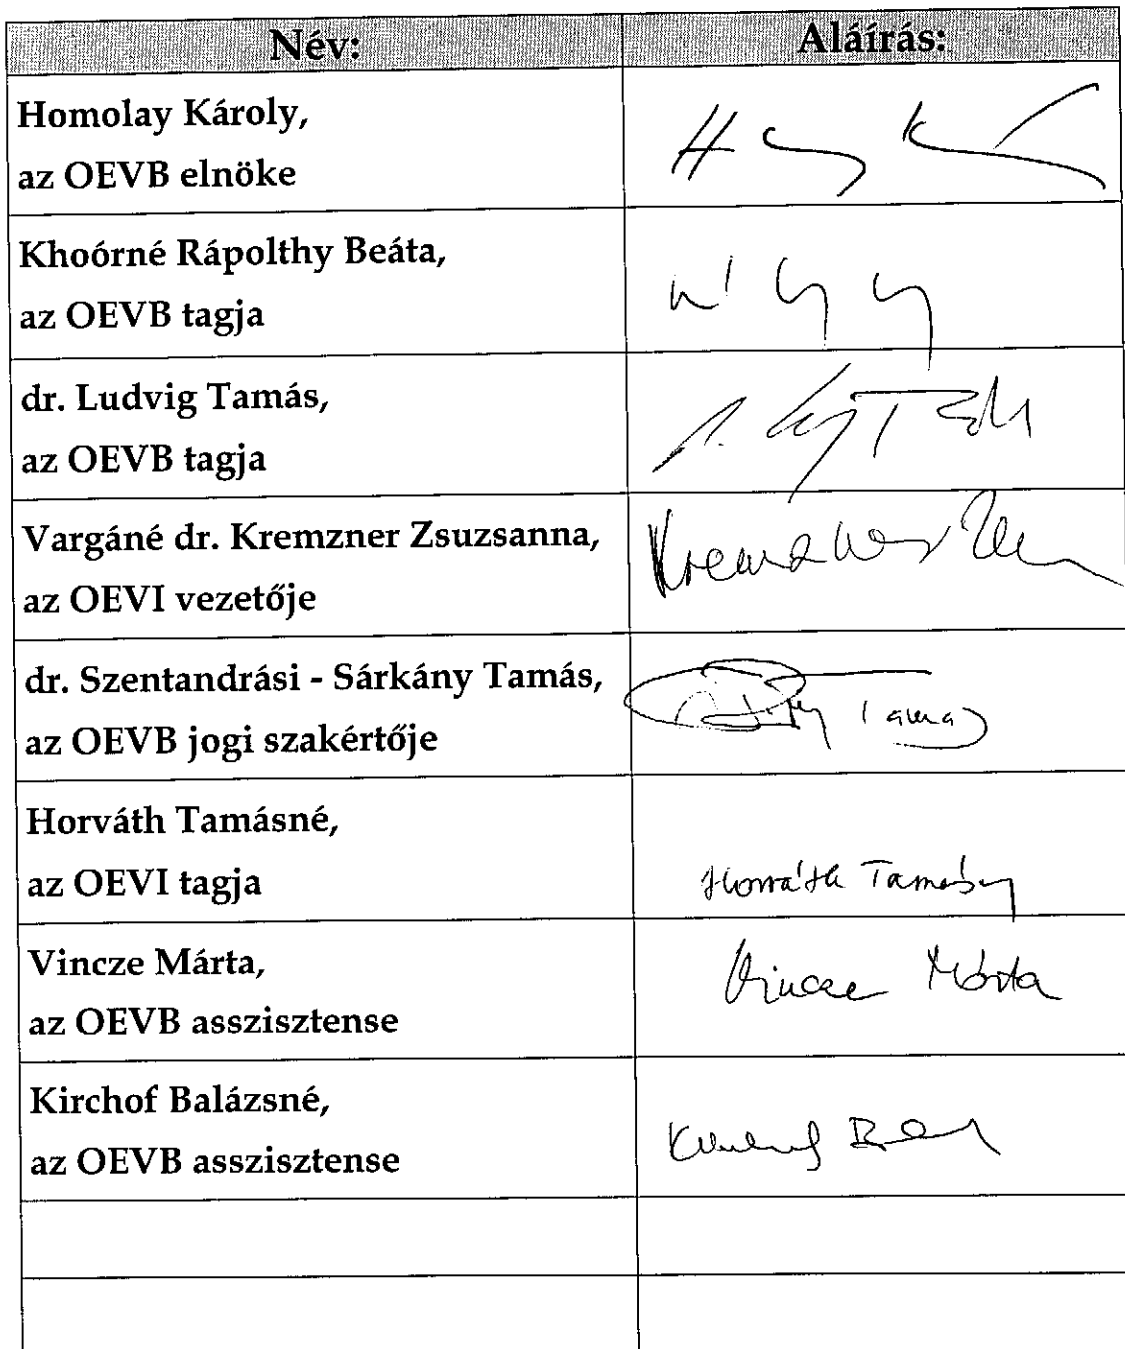 Név:
Aláírás:
Homolay Károly,
az OEVB elnöke
Khoórné Rápolthy Beáta,
az OEVB tagja
dr. Ludvig Tamás,
az OEVB tagja
Vargáné dr. Kremzner Zsuzsanna,
az OEVI vezetője
dr. Szentandrási - Sárkány Tamás,
az OEVB jogi szakértője
Tamás
Horváth Tamásné,
az OEVI tagja
Horváth Tamásné
Vincze Márta,
az OEVB asszisztense
Vincze Márta
Kirchof Balázsné,
az OEVB asszisztense